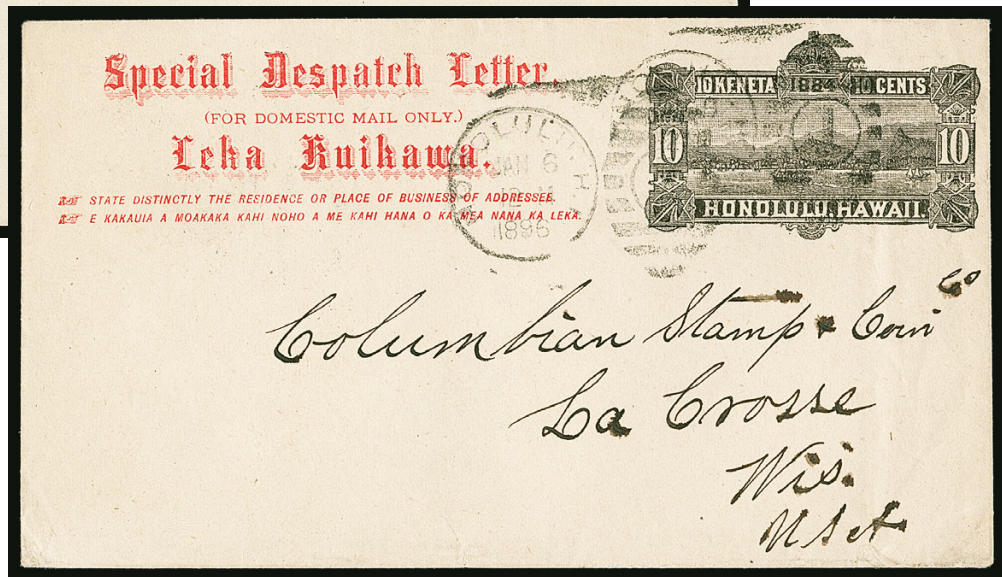 Special Despatch Letter.
(FOR DOMESTIC MAIL ONLY.)
Leka Kuikawa.
STATE DISTINCTLY THE RESIDENCE OR PLACE OF BUSINESS OF ADDRESSEE.
E KAKAUIA A MOAKAKA KAHI NOHO A ME KAHI HANA O KA MEA NANA KA LEKA.
HONOLULU H
JAN 6
1896
10 KENETA 1884 10 CENTS
10 10
HONOLULU, HAWAII.
Columbian Stamp & Coin Co
La Crosse
Wis.